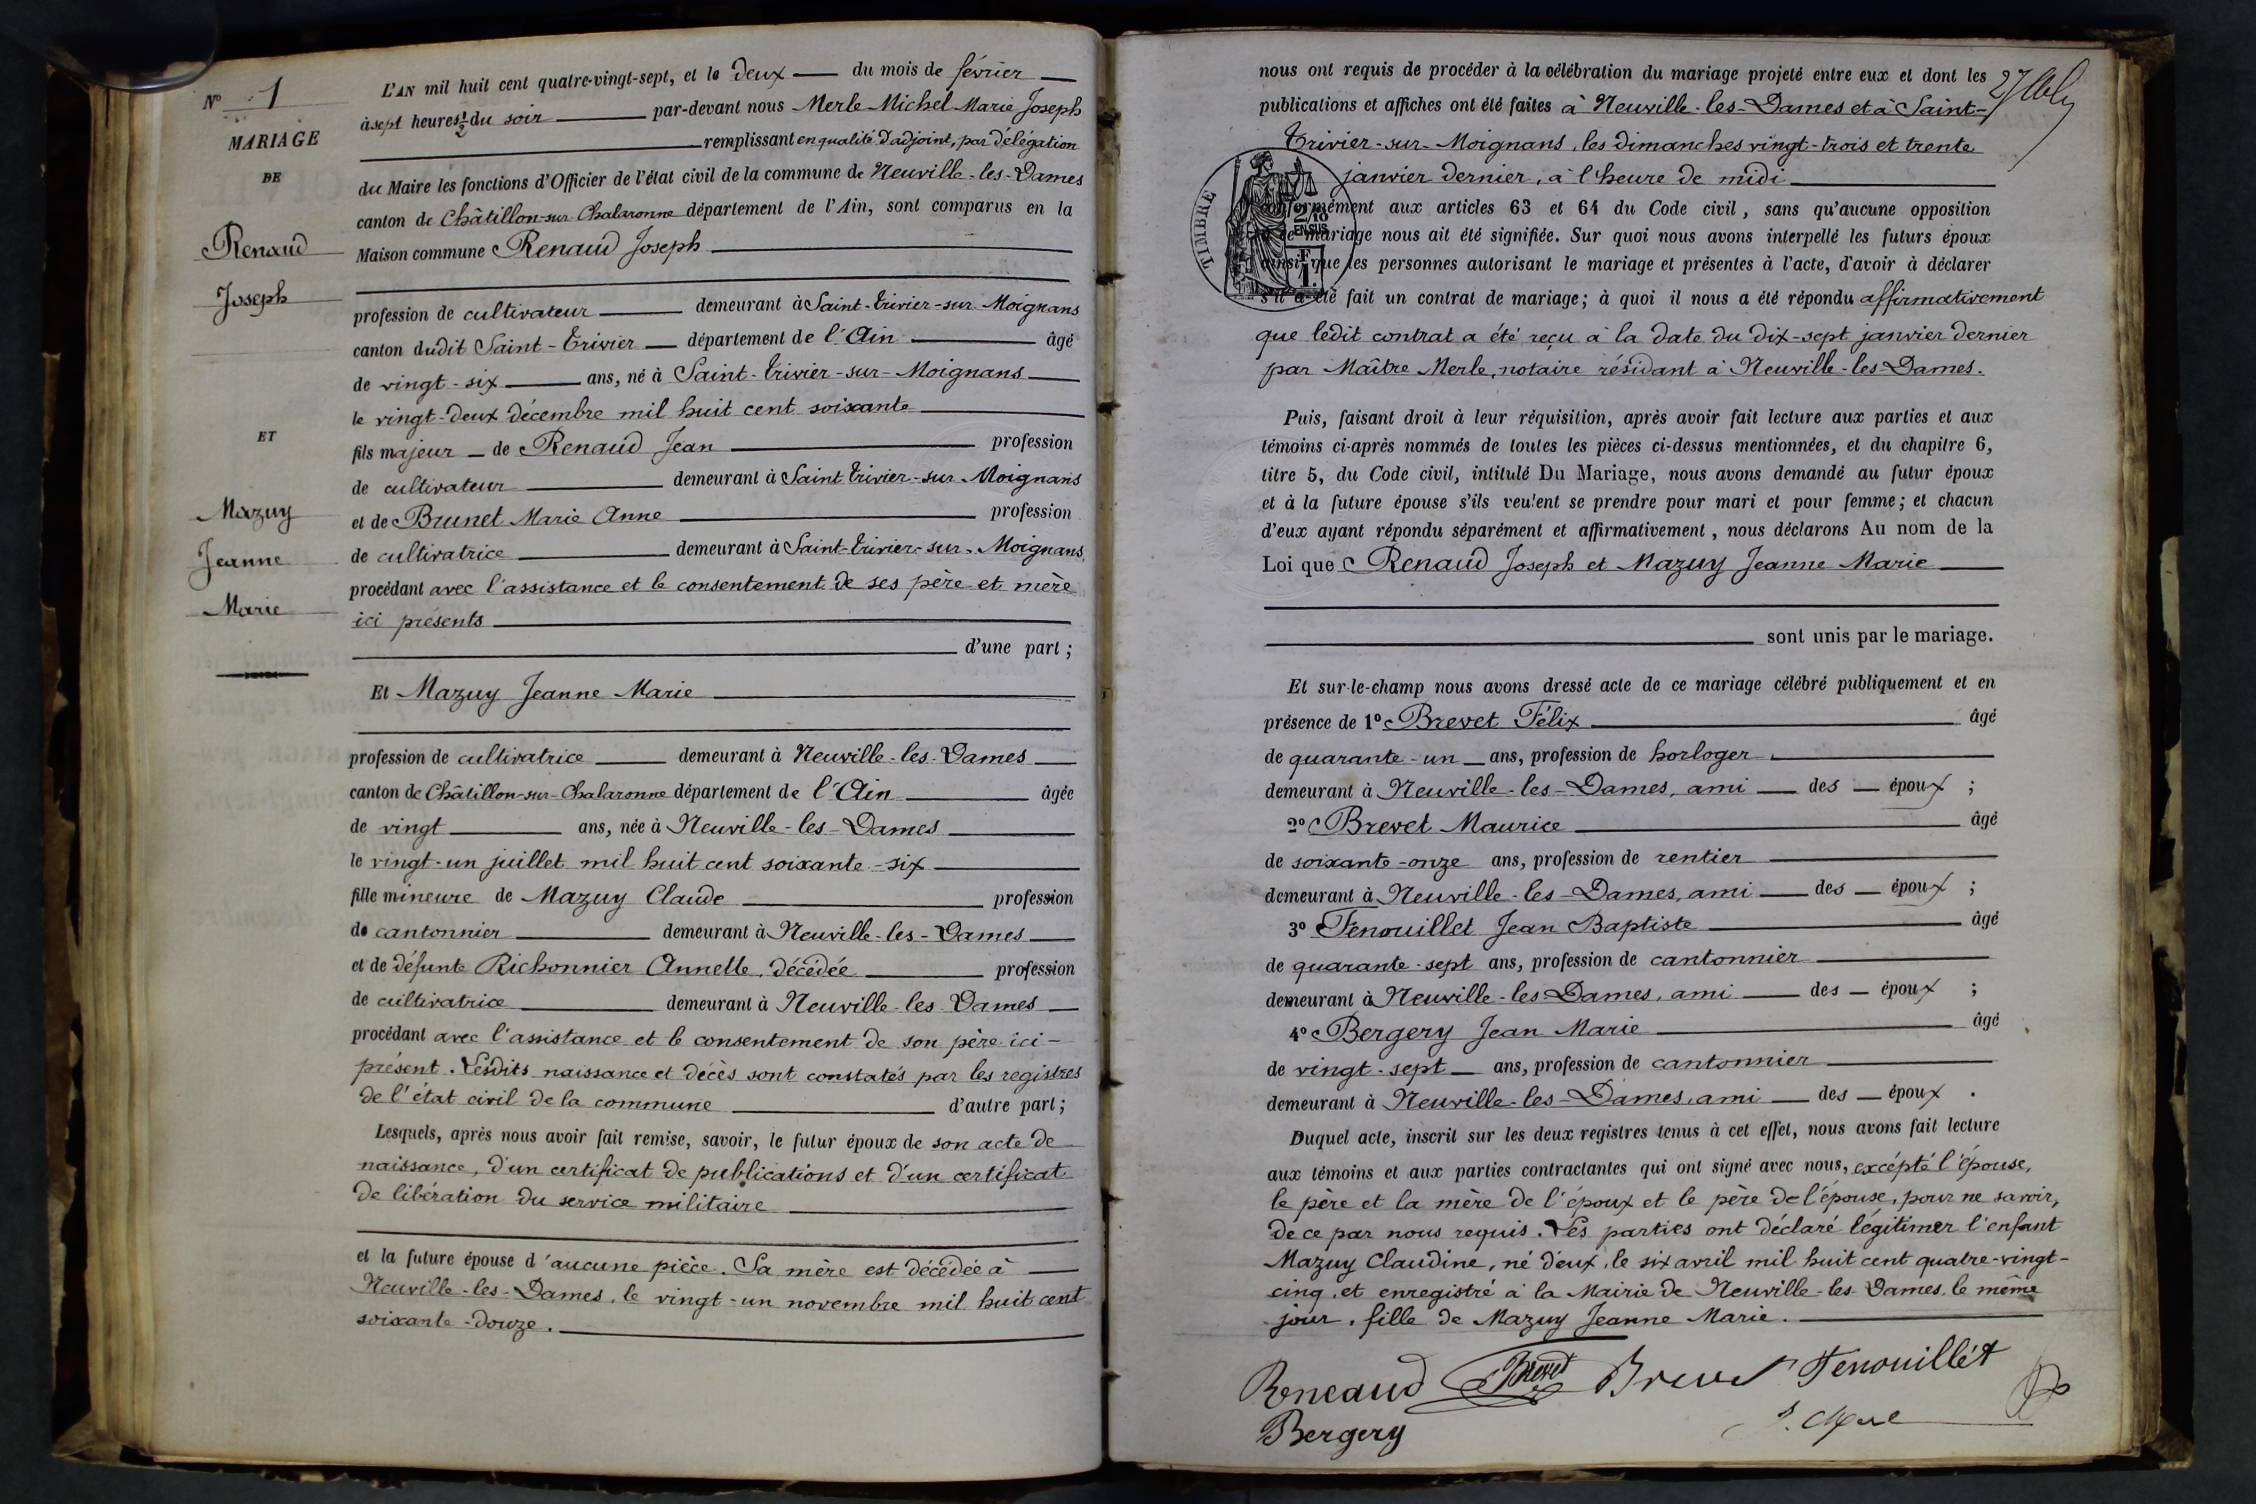 N° 1
MARIAGE
DE
Renaud
Joseph
ET
Mazuy
Jeanne
Marie
L'AN mil huit cent quatre-vingt-sept, et le deux du mois de février
à sept heures 1/2 du soir par-devant nous Merle Michel Marie Joseph
remplissant en qualité d'adjoint, par délégation
du Maire les fonctions d'Officier de l'état civil de la commune de Neuville-les-Dames
canton de Châtillon-sur-Chalaronne département de l'Ain, sont comparus en la
Maison commune Renaud Joseph
profession de cultivateur demeurant à Saint-Trivier-sur-Moignans
canton dudit Saint-Trivier département de l'Ain âgé
de vingt-six ans, né à Saint-Trivier-sur-Moignans
le vingt-deux décembre mil huit cent soixante
fils majeur de Renaud Jean profession
de cultivateur demeurant à Saint-Trivier-sur-Moignans
et de Brunet Marie Anne profession
de cultivatrice demeurant à Saint-Trivier-sur-Moignans,
procédant avec l'assistance et le consentement de ses père et mère
ici présents
d'une part ;
Et Mazuy Jeanne Marie
profession de cultivatrice demeurant à Neuville-les-Dames
canton de Châtillon-sur-Chalaronne département de l'Ain âgée
de vingt ans, née à Neuville-les-Dames
le vingt-un juillet mil huit cent soixante-six
fille mineure de Mazuy Claude profession
de cantonnier demeurant à Neuville-les-Dames
et de défunte Richonnier Annette, décédée profession
de cultivatrice demeurant à Neuville-les-Dames
procédant avec l'assistance et le consentement de son père ici-
présent. Lesdits naissance et décès sont constatés par les registres
de l'état civil de la commune d'autre part ;
Lesquels, après nous avoir fait remise, savoir, le futur époux de son acte de
naissance, d'un certificat de publications et d'un certificat
de libération du service militaire
et la future épouse d'aucune pièce. Sa mère est décédée à
Neuville-les-Dames, le vingt-un novembre mil huit cent
soixante-douze.
nous ont requis de procéder à la célébration du mariage projeté entre eux et dont les
publications et affiches ont été faites à Neuville-les-Dames et à Saint-
Trivier-sur-Moignans, les dimanches vingt-trois et trente
janvier dernier, à l'heure de midi
TIMBRE
2/10
EN SUS
conformément aux articles 63 et 64 du Code civil, sans qu'aucune opposition
mariage nous ait été signifiée. Sur quoi nous avons interpellé les futurs époux
ainsi que les personnes autorisant le mariage et présentes à l'acte, d'avoir à déclarer
s'il a été fait un contrat de mariage; à quoi il nous a été répondu affirmativement
que ledit contrat a été reçu à la date du dix-sept janvier dernier
par Maître Merle, notaire résidant à Neuville-les-Dames.
Puis, faisant droit à leur réquisition, après avoir fait lecture aux parties et aux
témoins ci-après nommés de toutes les pièces ci-dessus mentionnées, et du chapitre 6,
titre 5, du Code civil, intitulé Du Mariage, nous avons demandé au futur époux
et à la future épouse s'ils veulent se prendre pour mari et pour femme; et chacun
d'eux ayant répondu séparément et affirmativement, nous déclarons Au nom de la
Loi que Renaud Joseph et Mazuy Jeanne Marie
sont unis par le mariage.
Et sur-le-champ nous avons dressé acte de ce mariage célébré publiquement et en
présence de 1° Brevet Félix âgé
de quarante-un ans, profession de horloger
demeurant à Neuville-les-Dames, ami des époux ;
2° Brevet Maurice âgé
de soixante-onze ans, profession de rentier
demeurant à Neuville-les-Dames, ami des époux ;
3° Fenouillet Jean Baptiste âgé
de quarante-sept ans, profession de cantonnier
demeurant à Neuville-les-Dames, ami des époux ;
4° Bergery Jean Marie âgé
de vingt-sept ans, profession de cantonnier
demeurant à Neuville-les-Dames, ami des époux .
Duquel acte, inscrit sur les deux registres tenus à cet effet, nous avons fait lecture
aux témoins et aux parties contractantes qui ont signé avec nous, excépté l'épouse,
le père et la mère de l'époux et le père de l'épouse, pour ne savoir,
de ce par nous requis. Les parties ont déclaré légitimer l'enfant
Mazuy Claudine, né d'eux, le six avril mil huit cent quatre-vingt-
cinq, et enregistré à la Mairie de Neuville-les-Dames, le même
jour, fille de Mazuy Jeanne Marie.
Reneaud Brevet Brevet Fenouillét
Bergery